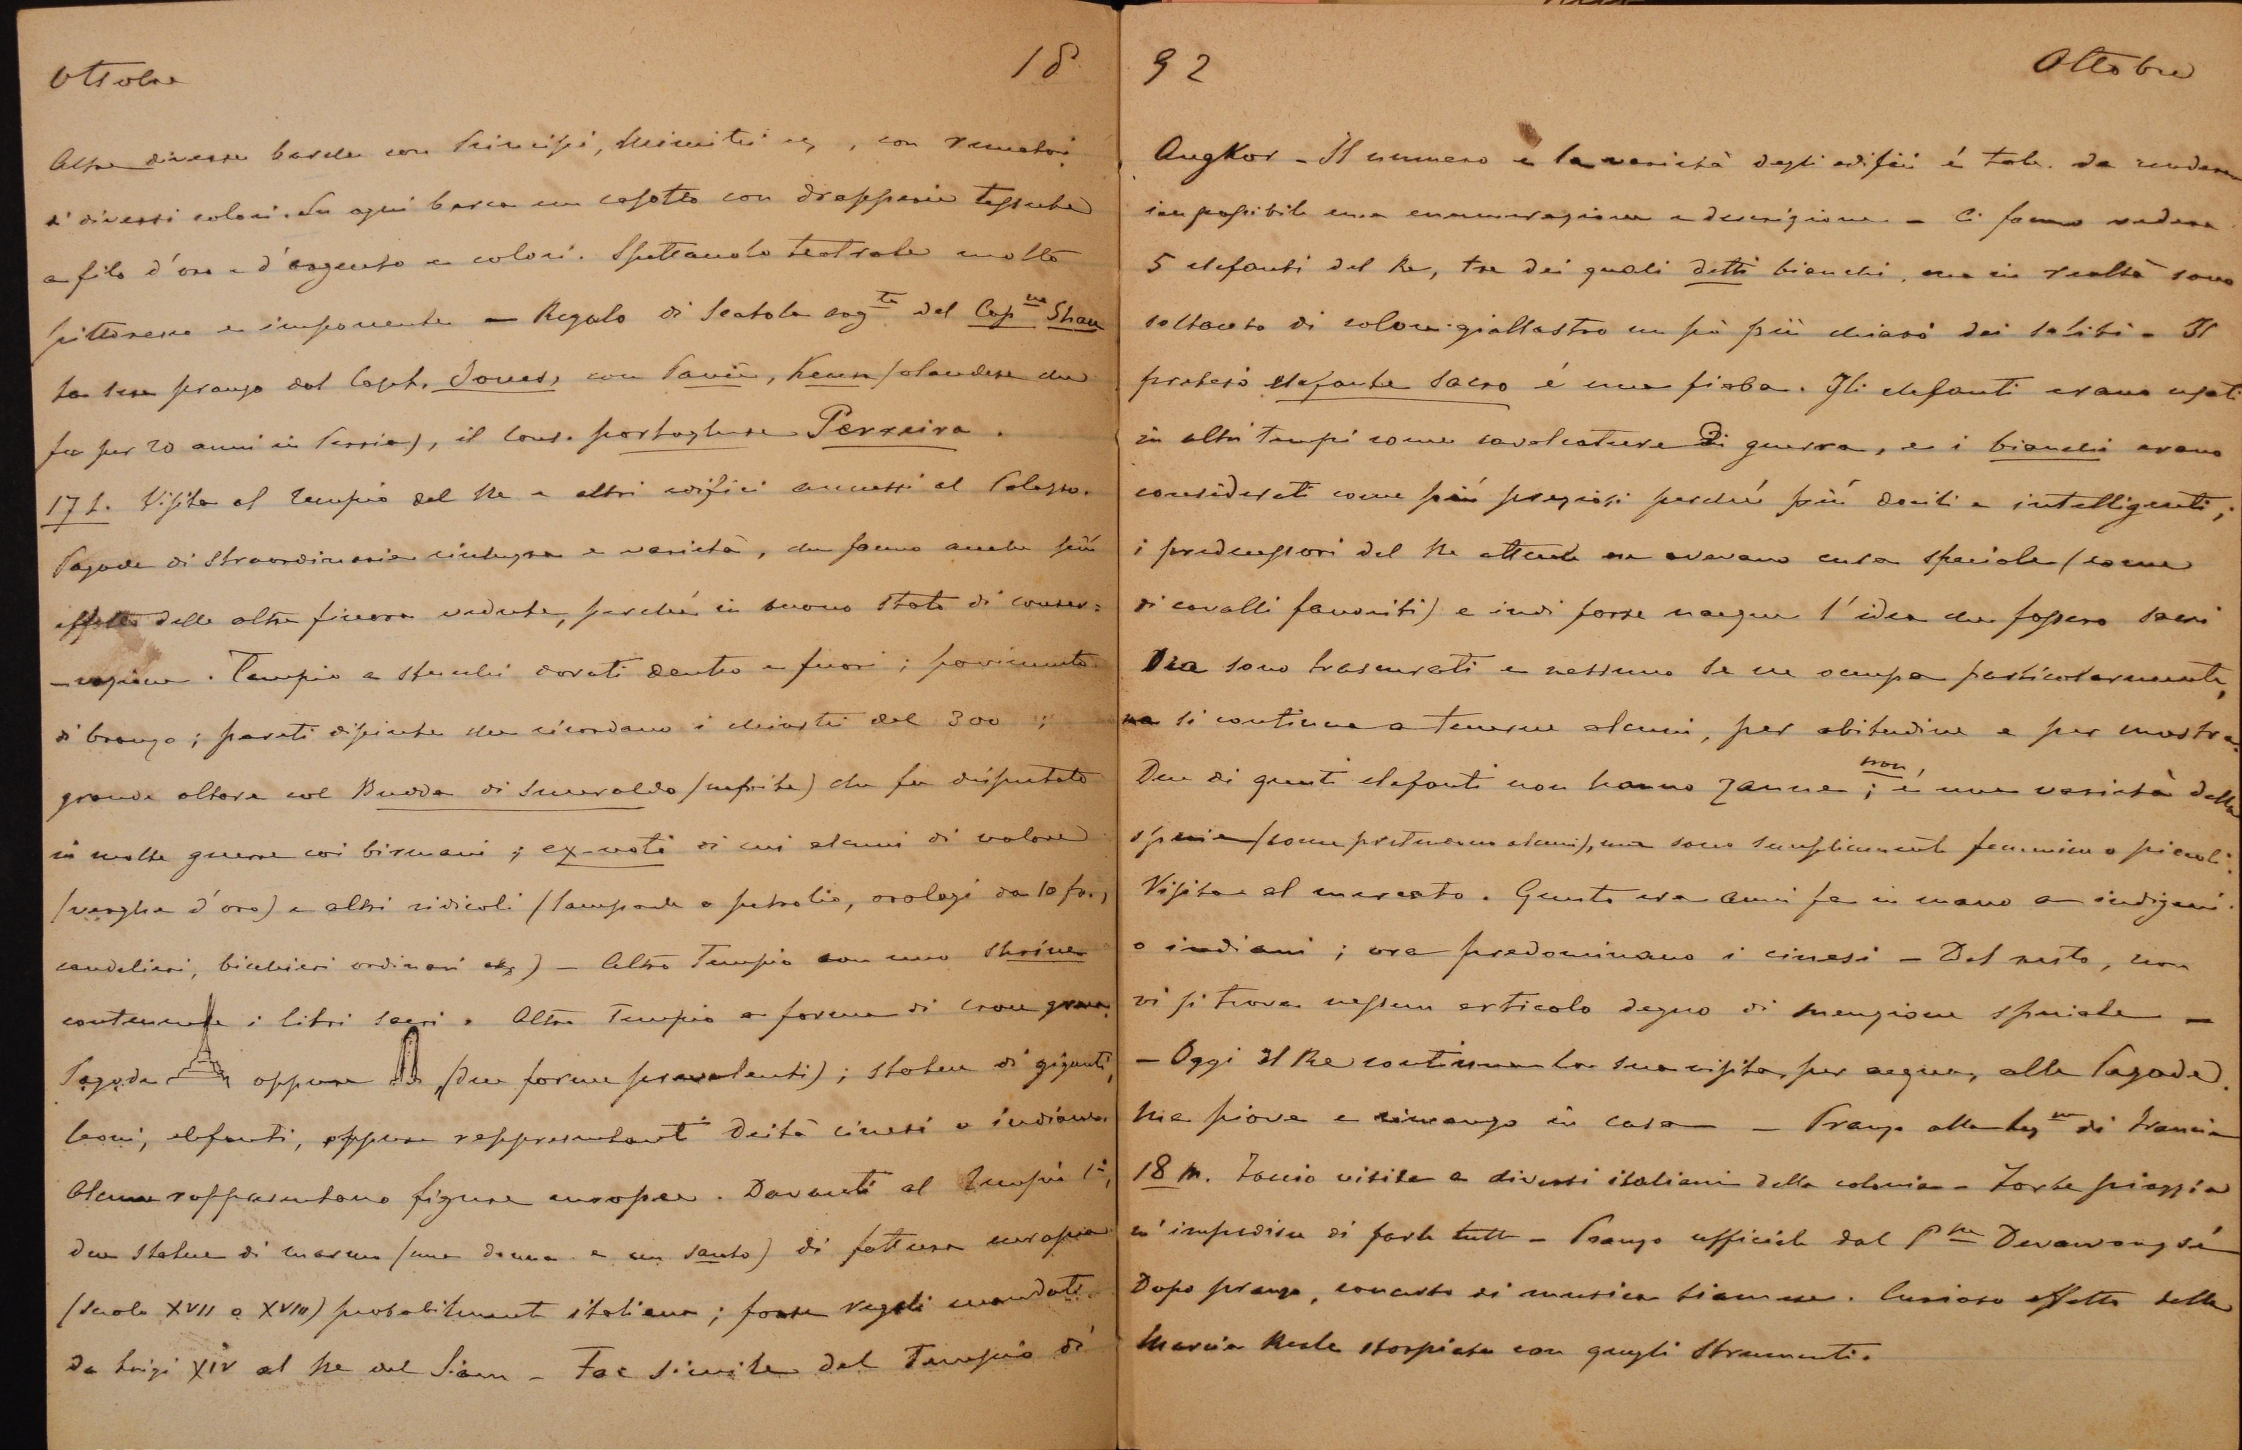 Ottobre 18
Altre diverse barche con Principi, Ministri ecc, con rematori
di diversi colori. Su ogni barca un casotto con drapperie tessute
a filo d'oro e d'argento e colori. Spettacolo teatrale molto
pittoresco e imponente — Regalo di Scatola arg.ta dal Cap.ne Shaw
La sera pranzo dal Capt. Jones, con Pavie, Keun (olandese che
fu per 20 anni in Persia), il Cons. portoghese Perreira.
17 L. Visita al Tempio del Re e altri edifici annessi al Palazzo.
Pagode di straordinaria ricchezza e varietà, che fanno anche più
effetto delle altre finora vedute, perché in buono stato di conser=
-vazione. Tempio a stucchi dorati dentro e fuori; pavimento
di bronzo; pareti dipinte che ricordano i chiostri del 300;
grande altare col Budda di Smeraldo (nefrite) che fu disputato
in molte guerre coi birmani; ex-voti di cui alcuni di valore
(verghe d'oro) e altri ridicoli (lampade a petrolio, orologi da 10 fr.,
candelieri, bicchieri ordinari etc) — Altro Tempio con uno shrine
contenente i libri sacri. Altro Tempio a forma di croce greca.
Pagode oppure (due forme prevalenti); statue di giganti,
leoni, elefanti, oppure rappresentanti deità cinesi o indiane.
Alcune rappresentano figure europee. Davanti al Tempio 1°,
due statue di marmo (una donna e un santo) di fattura europea
(secolo XVII o XVIII) probabilmente italiana; forse regali mandati
da Luigi XIV al Re del Siam — Fac simile del Tempio di
92 Ottobre
Angkor — Il numero e la varietà degli edifici é tale da rendere
impossibile una enumerazione e descrizione. — Ci fanno vedere
5 elefanti del Re, tre dei quali detti bianchi, ma in realtà sono
soltanto di colore giallastro un pò più chiaro dei soliti — Il
preteso elefante sacro é una fiaba. Gli elefanti erano usati
in altri tempi come cavalcature di guerra, e i bianchi erano
considerati come più preziosi perché più docili e intelligenti;
i predecessori del Re attuale ne avevano cura speciale (come
di cavalli favoriti) e indi forse nacque l'idea che fossero sacri
Ora sono trascurati e nessuno se ne occupa particolarmente,
ma si continua a tenerne alcuni, per abitudine e per mostra.
Due di questi elefanti non hanno zanne; non é una varietà della
specie (come pretendono alcuni), ma sono semplicemente femmine o piccoli.
Visita al mercato. Questo era anni fa in mano a indigeni
o indiani; ora predominano i cinesi — Del resto, non
vi si trova nessun articolo degno di menzione speciale —
— Oggi il Re continua la sua visita, per acqua, alle Pagode.
Ma piove e rimango in casa — Pranzo alla Leg.ne di Francia
18 M. Faccio visite a diversi italiani della colonia — Forte pioggia
m'impedisce di farle tutte — Pranzo ufficiale dal P.pe Devawongsé
Dopo pranzo, concerto di musica siamese. Curioso effetto della
Marcia Reale storpiata con quegli strumenti.